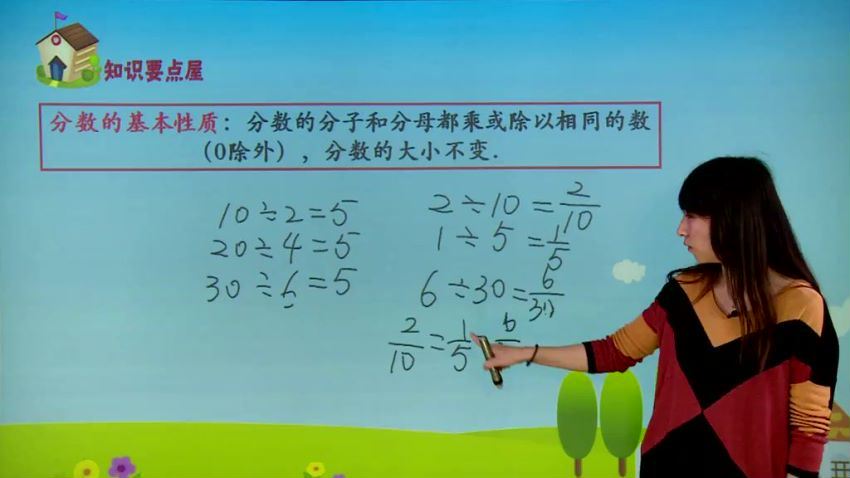 知识要点屋
分数的基本性质：分数的分子和分母都乘或除以相同的数
（0除外），分数的大小不变.
10÷2=5
20÷4=5
30÷6=5
2÷10=2/10
1÷5=1/5
6÷30=6/30
2/10=1/5 6